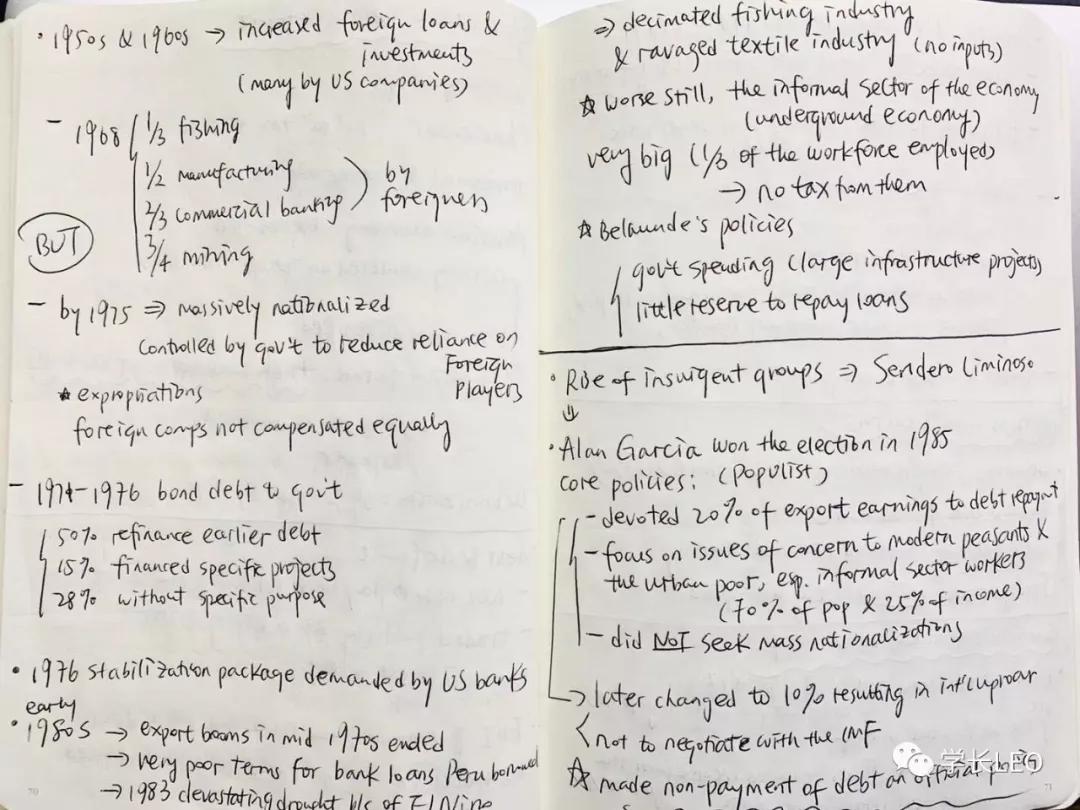 · 1950s & 1960s → increased foreign loans &
investments
(many by US companies)
- 1968
1/3 fishing
1/2 manufacturing
2/3 commercial banking
3/4 mining
by
foreigners
BUT
- by 1975 ⇒ massively nationalized
controlled by gov't to reduce reliance on
Foreign
players
★ expropriations
foreign comps not compensated equally
- 1974-1976 bond debt to gov't
50% refinance earlier debt
15% financed specific projects
28% without specific purpose
· 1976 stabilization package demanded by US banks
early
· 1980s → export booms in mid 1970s ended
→ very poor terms for bank loans Peru borrowed
→ 1983 devastating drought b/c of El Nino
70
⇒ decimated fishing industry
& ravaged textile industry (no inputs)
★ worse still, the informal sector of the economy
(underground economy)
very big (1/3 of the workforce employed)
→ no tax from them
★ Belaunde's policies
gov't spending (large infrastructure projects)
little reserve to repay loans
· Rise of insurgent groups ⇒ Sendero Liminoso
⇓
· Alan Garcia won the election in 1985
core policies: (populist)
- devoted 20% of export earnings to debt repay't
- focus on issues of concern to modern peasants &
the urban poor, esp. informal sector workers
(70% of pop & 25% of income)
- did NOT seek mass nationalizations
→ later changed to 10% resulting in int'l uproar
not to negotiate with the IMF
☆ made non-payment of debt an official
学长LEO
71